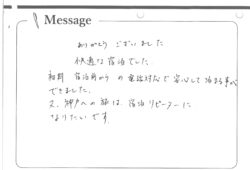 Message
ありがとうございました
快適な宿泊でした。
宿泊前からの電話対応で安心して泊まる事が
できました。
又、神戸への旅は、宿泊リピーターに
なりたいです。